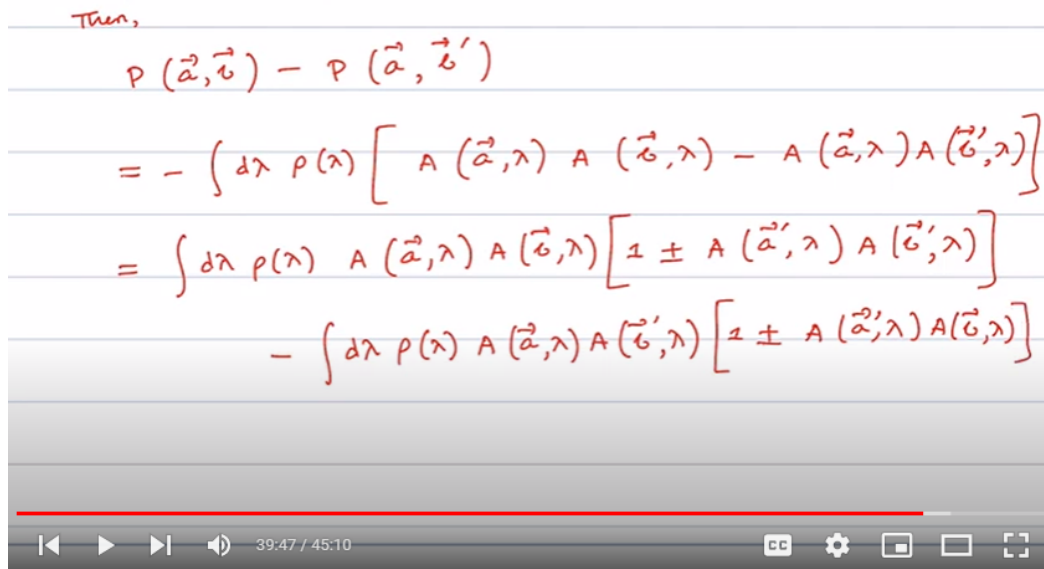 Then,
P (a⃗, b⃗) − P (a⃗, b⃗′)
= − ∫ dλ ρ(λ) [ A (a⃗, λ) A (b⃗, λ) − A (a⃗, λ) A (b⃗′, λ) ]
= ∫ dλ ρ(λ) A (a⃗, λ) A (b⃗, λ) [ 1 ± A (a⃗′, λ) A (b⃗′, λ) ]
− ∫ dλ ρ(λ) A (a⃗, λ) A (b⃗′, λ) [ 1 ± A (a⃗′, λ) A (b⃗, λ) ]
39:47 / 45:10 CC